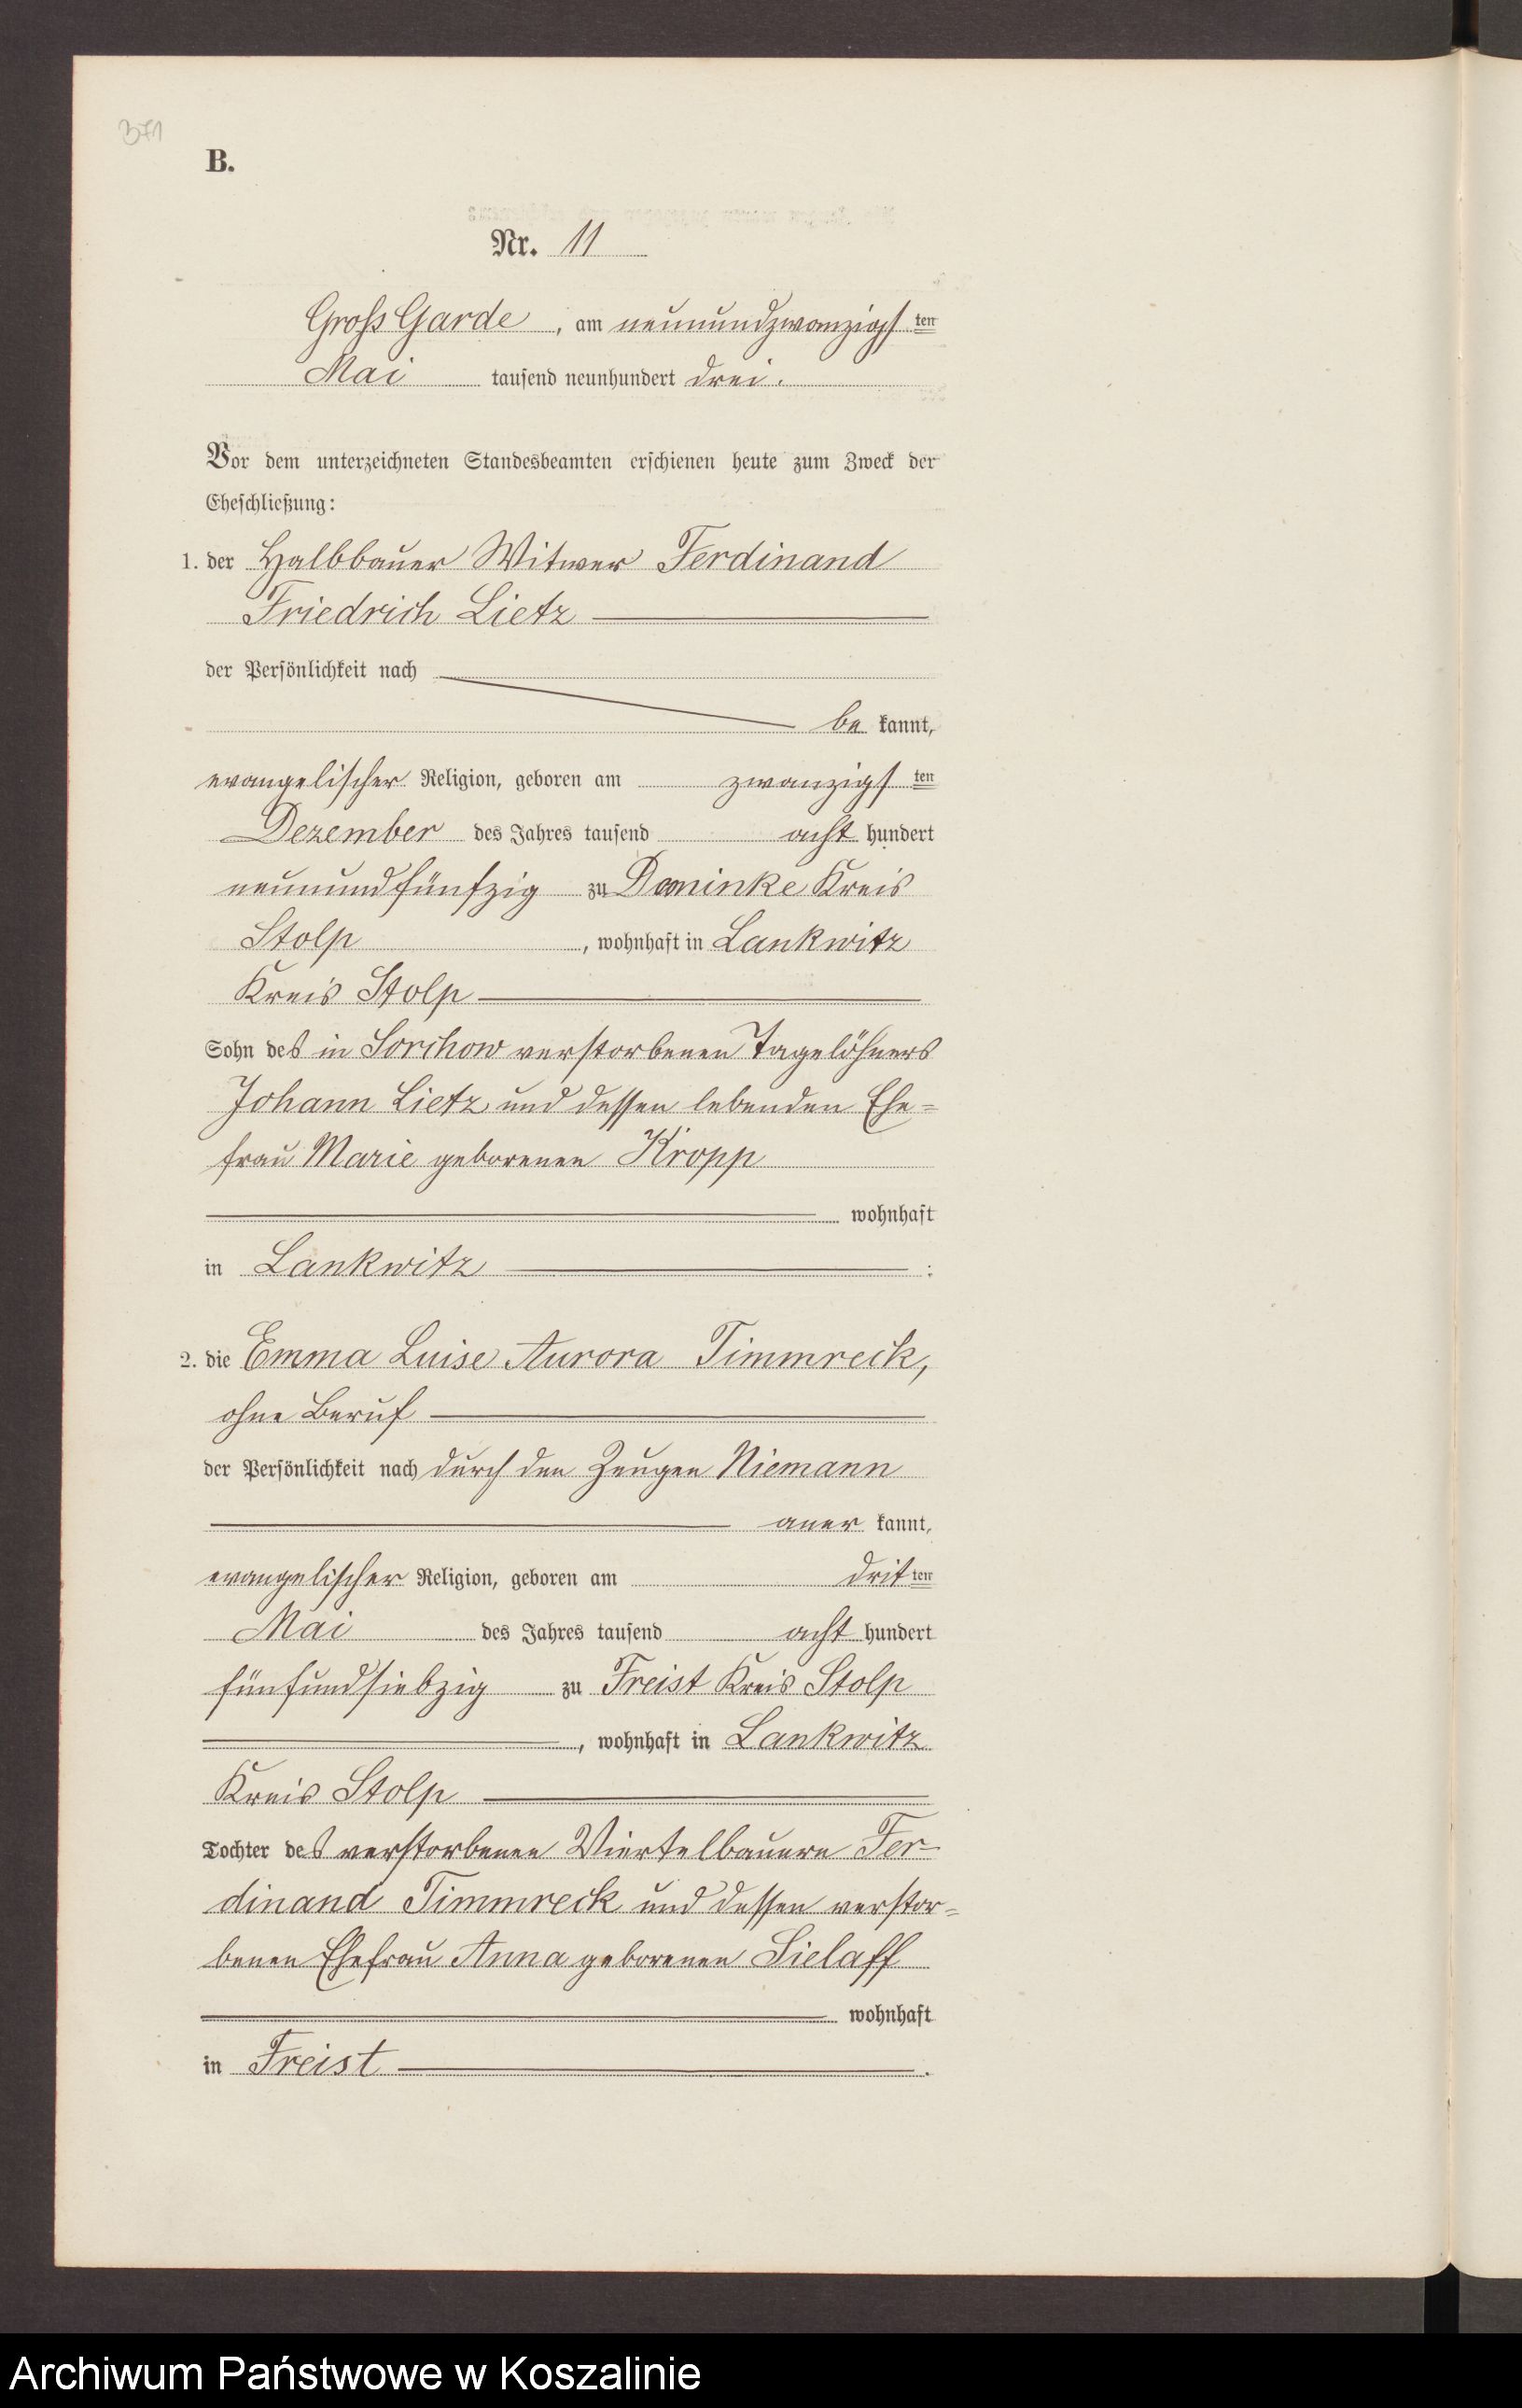 371
B.
Nr. 11
Gross Garde, am neunundzwanzigsten
Mai tausend neunhundert drei.
Vor dem unterzeichneten Standesbeamten erschienen heute zum Zweck der
Eheschließung:
1. der Halbbauer Witwer Ferdinand
Friedrich Lietz
der Persönlichkeit nach
be kannt,
evangelischer Religion, geboren am zwanzigsten
Dezember des Jahres tausend acht hundert
neunundfünfzig zu Dominke Kreis
Stolp, wohnhaft in Lankwitz
Kreis Stolp
Sohn des in Sorchow verstorbenen Tagelöhners
Johann Lietz und dessen lebenden Ehe=
frau Marie geborenen Kropp
wohnhaft
in Lankwitz :
2. die Emma Luise Aurora Timmreck,
ohne Beruf
der Persönlichkeit nach durch den Zeugen Niemann
aner kannt,
evangelischer Religion, geboren am dritten
Mai des Jahres tausend acht hundert
fünfundsiebzig zu Freist Kreis Stolp
, wohnhaft in Lankwitz
Kreis Stolp
Tochter des verstorbenen Viertelbauern Fer=
dinand Timmreck und dessen verstor=
benen Ehefrau Anna geborenen Sielaff
wohnhaft
in Freist .
Archiwum Państwowe w Koszalinie